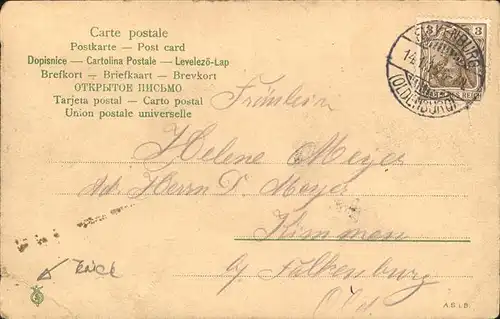 Carte postale
Postkarte — Post card
Dopisnice — Cartolina Postale — Levelező-Lap
Brefkort — Briefkaart — Brevkort
ОТКРЫТОЕ ПИСЬМО
Tarjeta postal — Carto postal
Union postale universelle
3 3
REICH
(OLDENBURG)
Fräulein
Helene Meyer
Adr. Herrn D. Meyer
Kimmen
by Falkenburg
Old.
A.S.i.B.